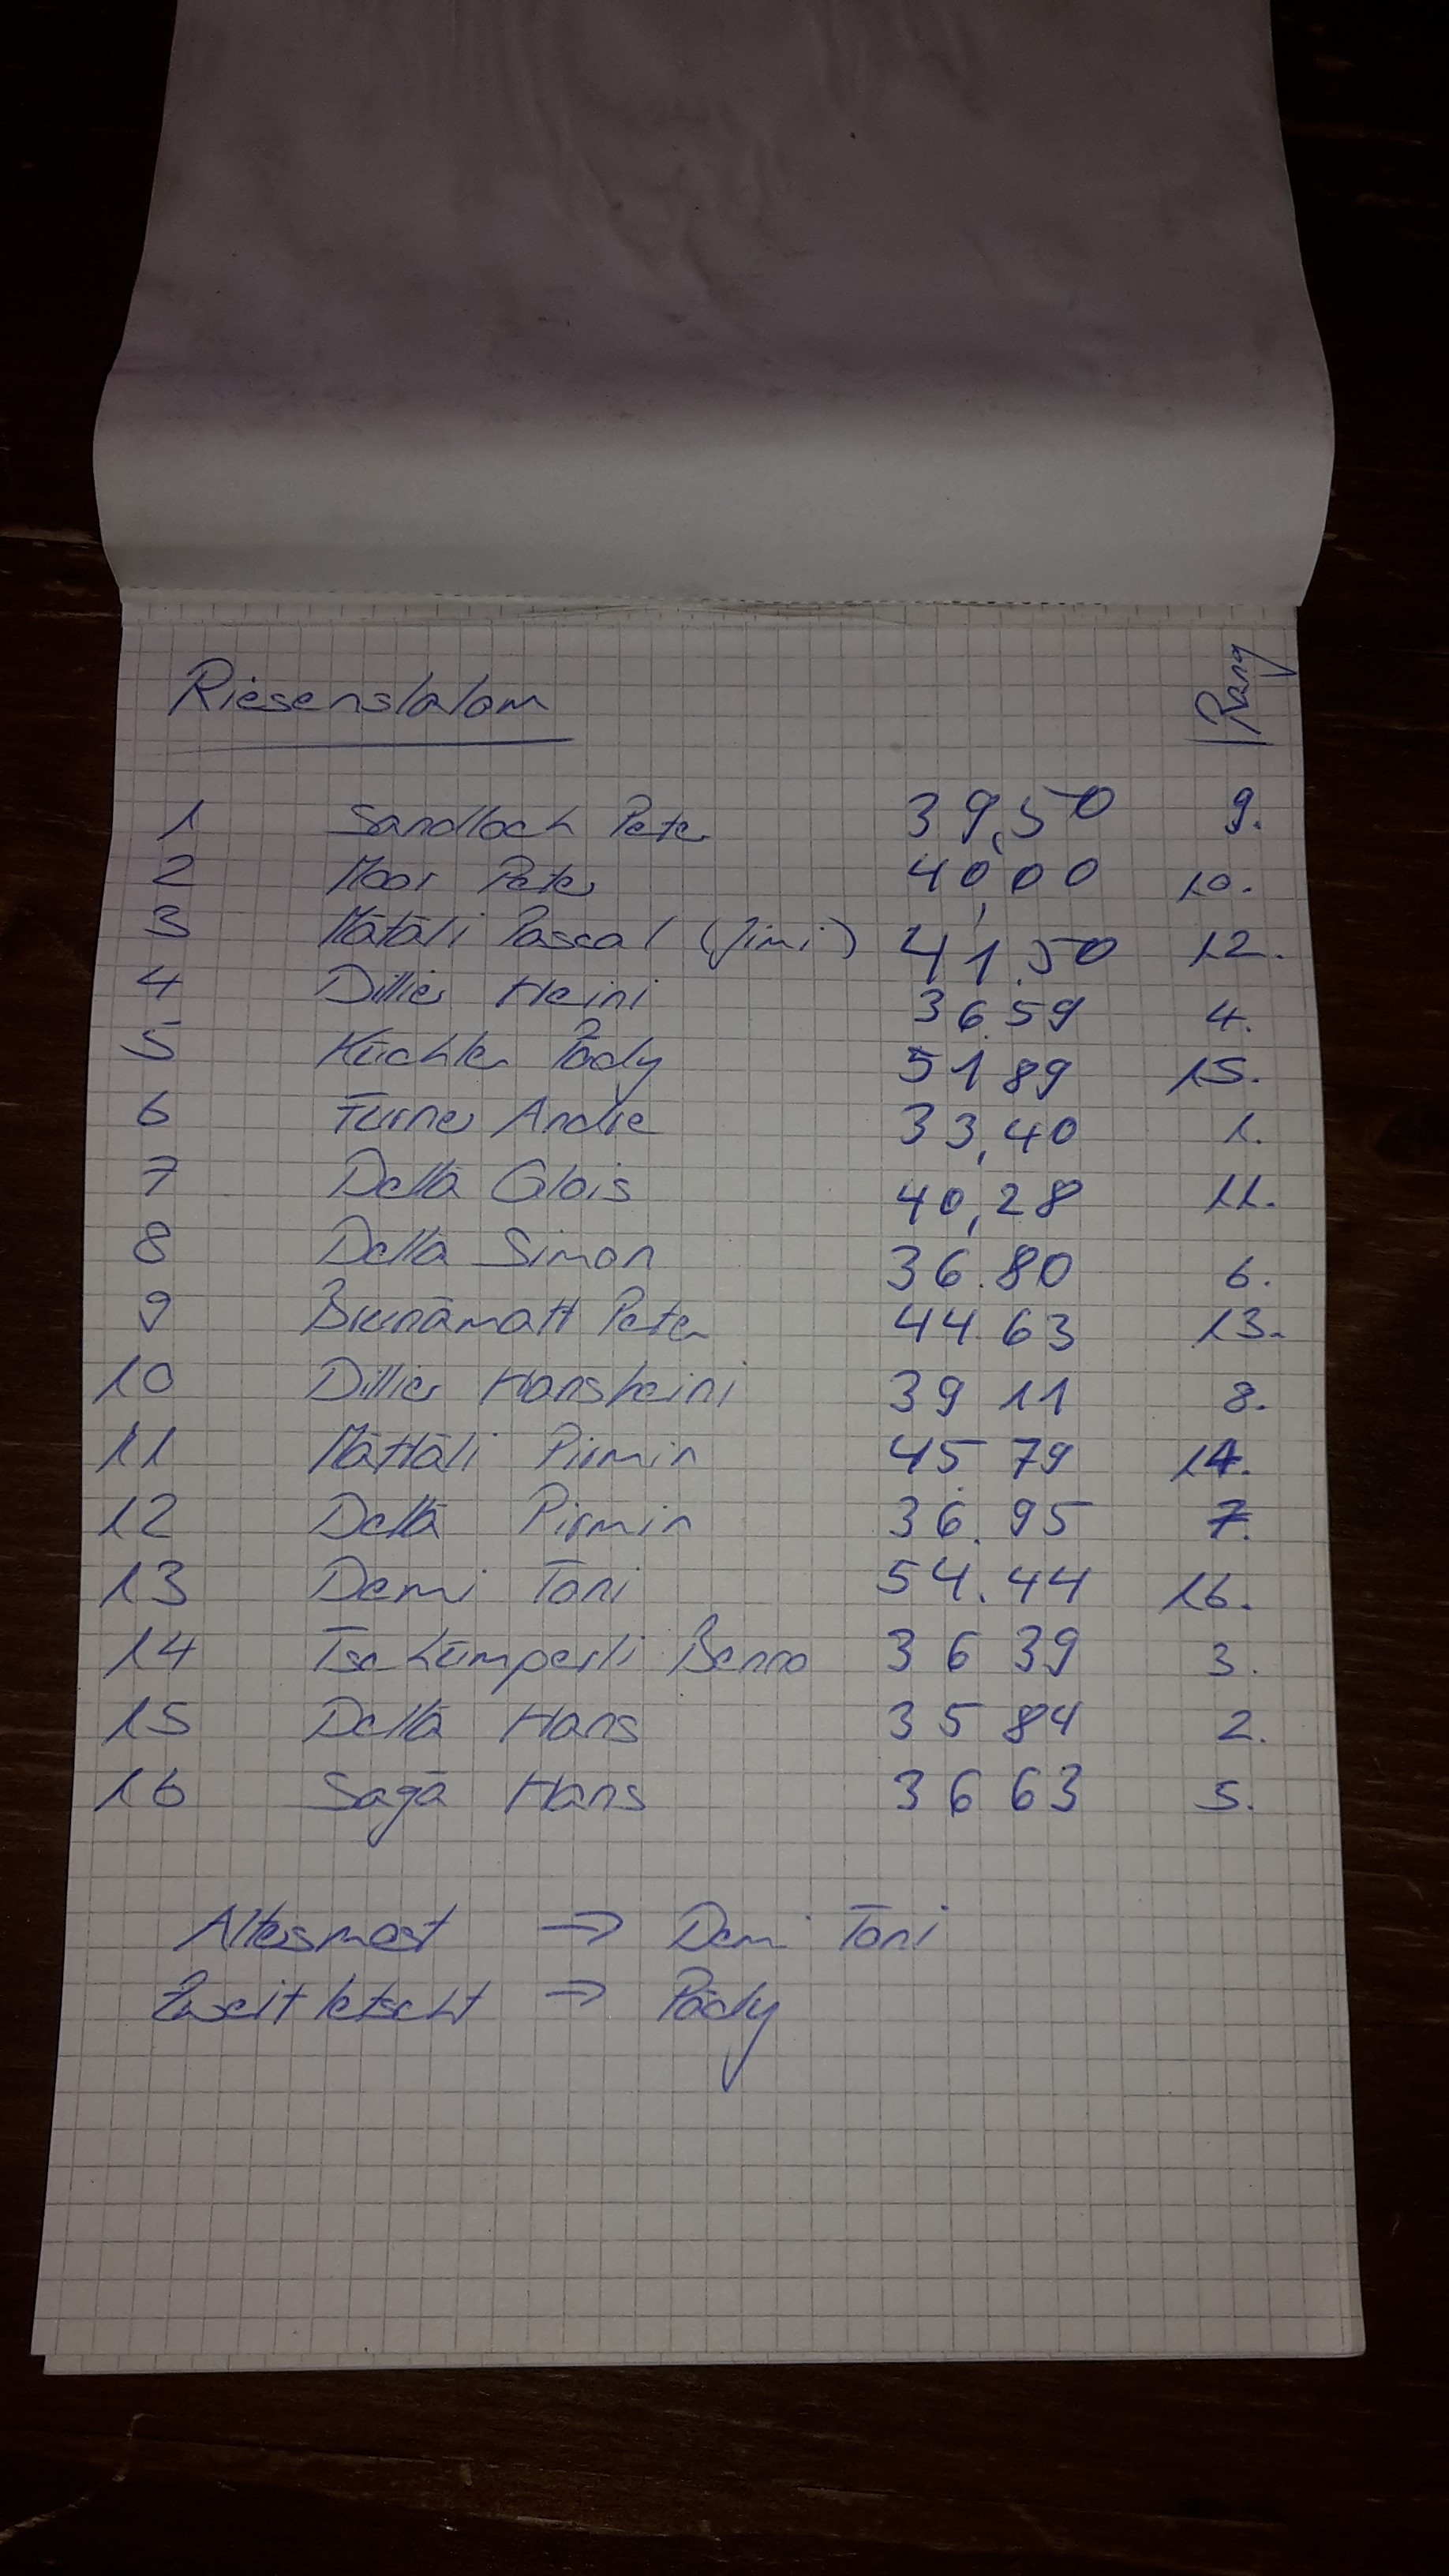 Riesenslalom Rang
1 Sandloch Peter 39,50 9.
2 Moor Peter 40,00 10.
3 Mätäli Pascal (Jimi) 41.50 12.
4 Dillier Heini 36.59 4.
5 Küchler Pädy 51 89 15.
6 Turner Andre 33,40 1.
7 Dellä Glois 40,28 11.
8 Dellä Simon 36.80 6.
9 Brunämatt Peter 44.63 13.
10 Dillier Hansheini 39 11 8.
11 Mättäli Pirmin 45 79 14.
12 Dellä Pirmin 36.95 7.
13 Demi Toni 54.44 16.
14 Tschümperli Benno 36 39 3.
15 Dellä Hans 35 84 2.
16 Sagä Hans 36 63 5.
⇒ Demi Toni
Zweitletscht ⇒ Pädy